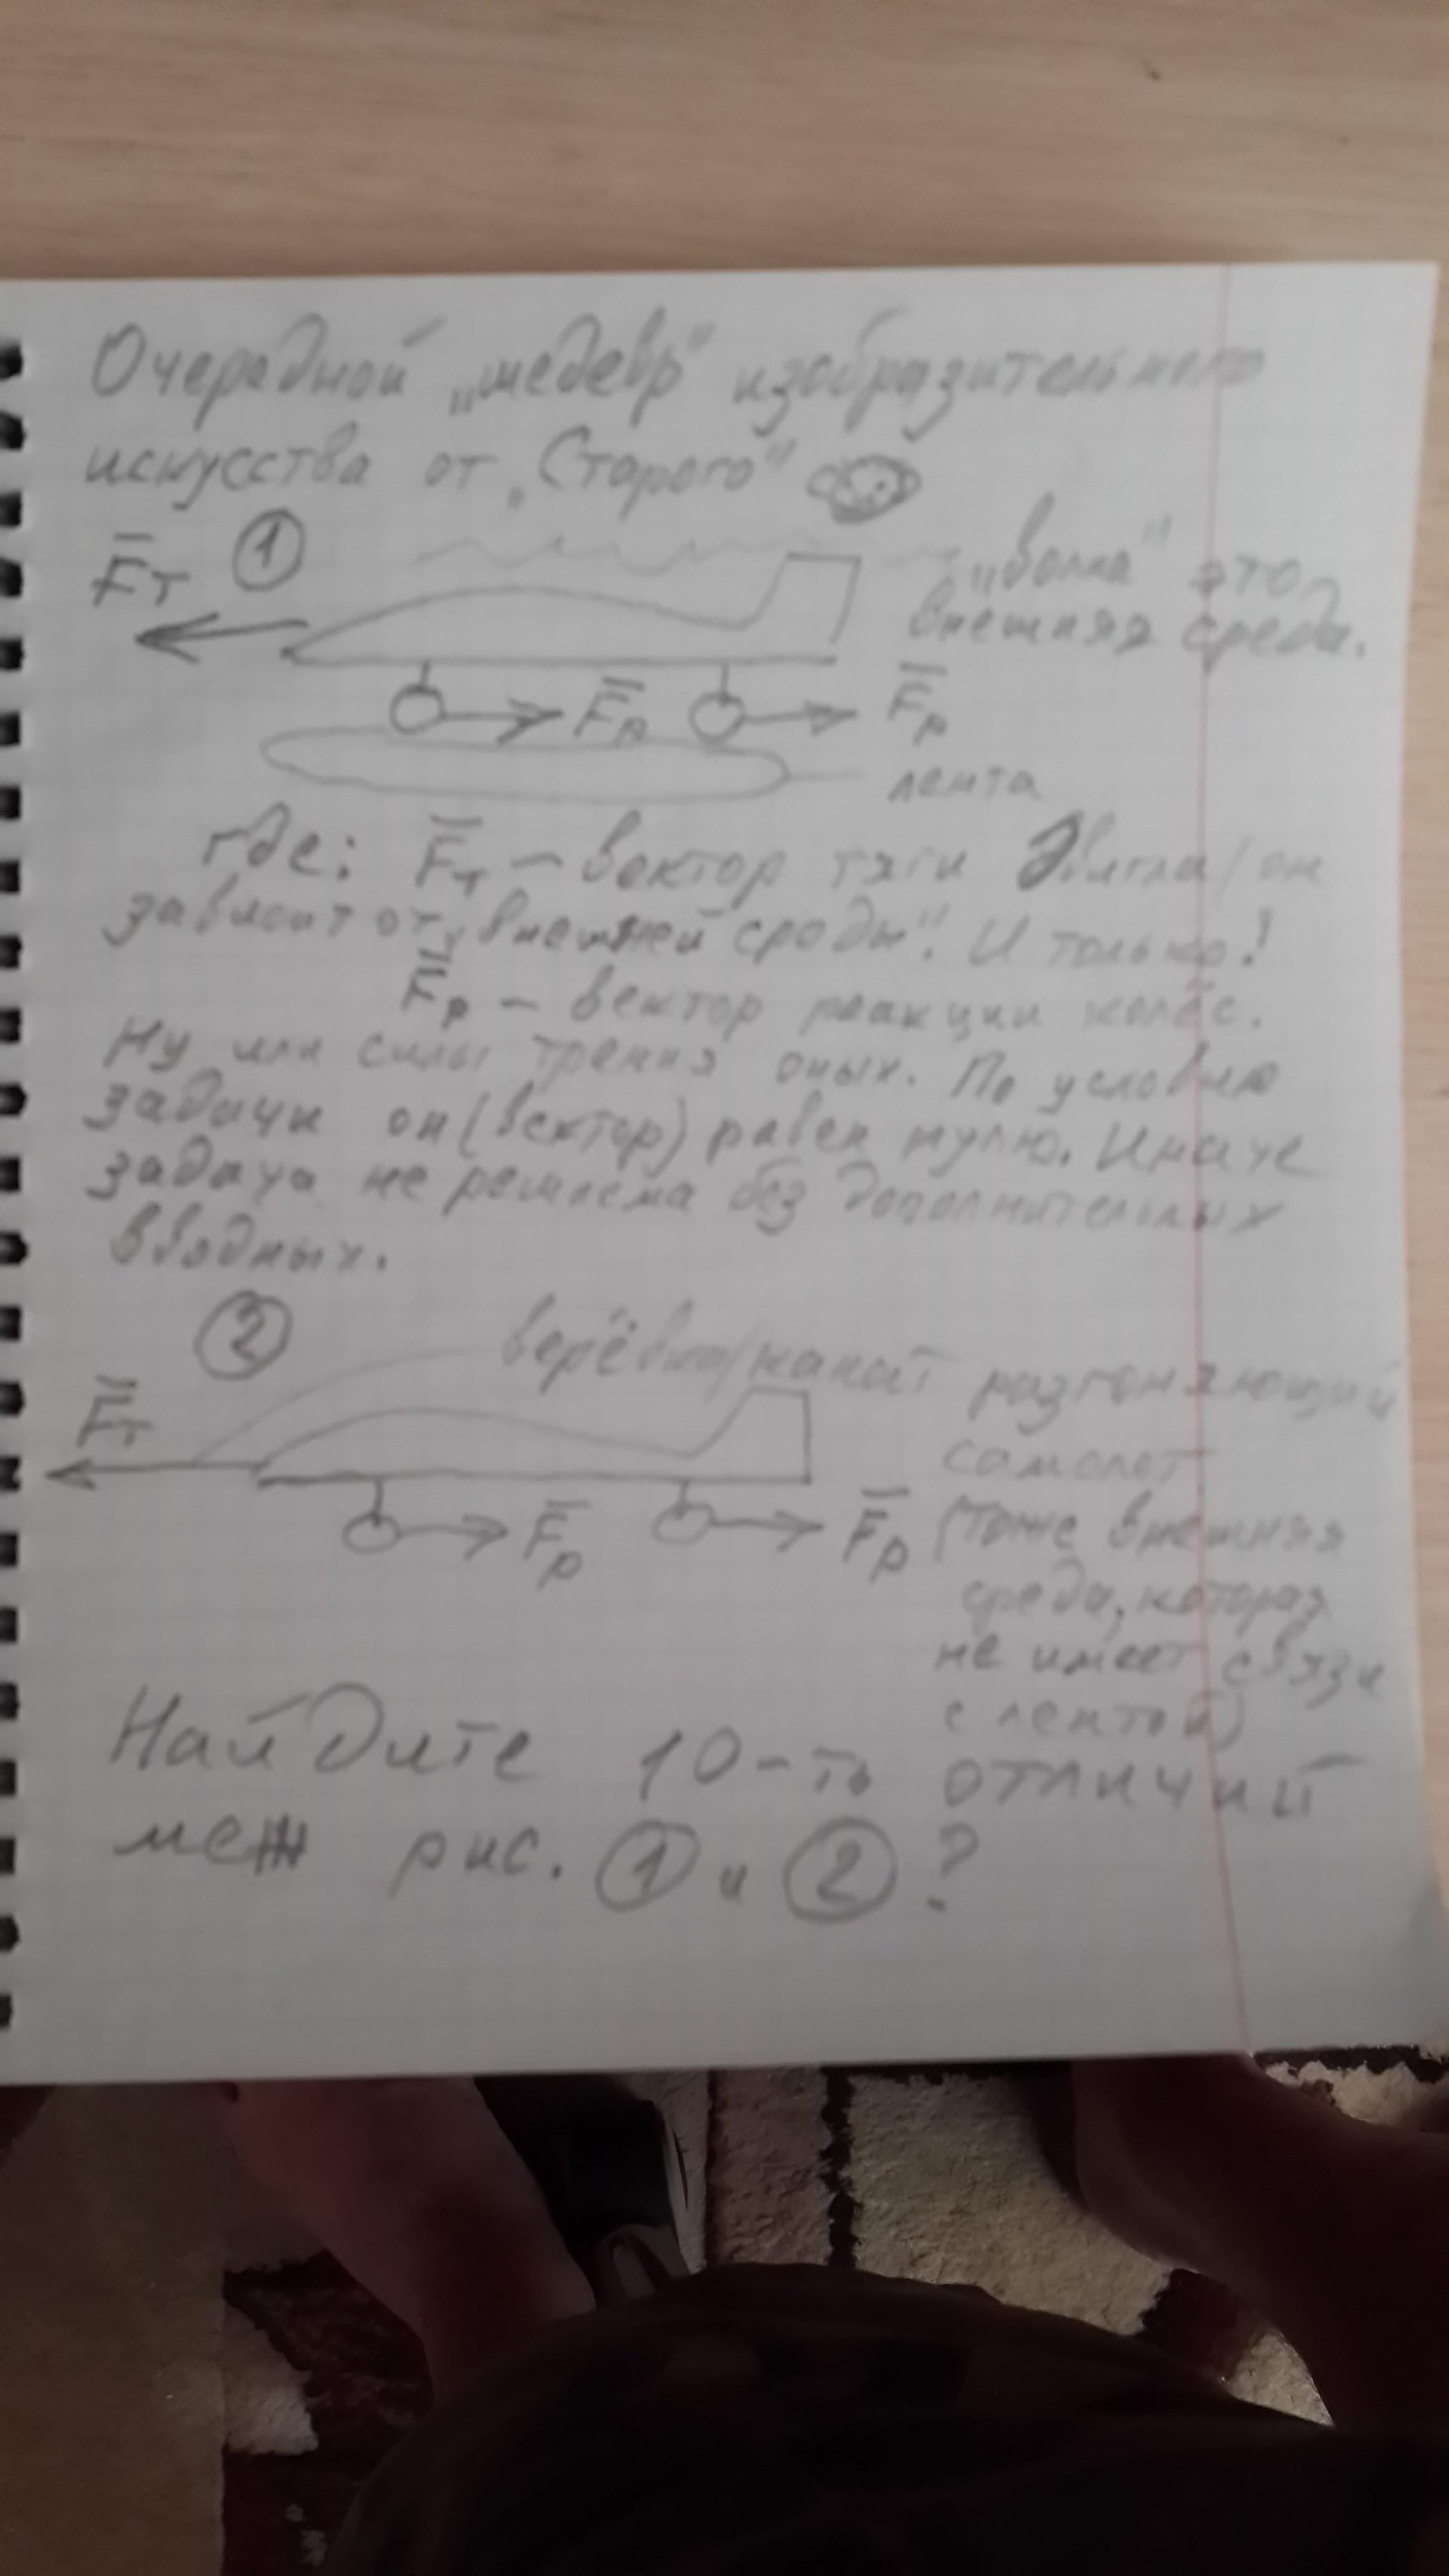 Очерадной „шедевр" изобразительного
искусства от „Старого"
F̅т ① „волна" это
внешняя среда.
F̅р F̅р
лента
где: F̅т – вектор тяги двигла (он
зависит от „внешней среды". И только!
F̅р – вектор реакции колёс.
Ну или силы трения оных. По условию
задачи он (вектор) равен нулю. Иначе
задача не решаема без дополнительных
вводных.
② верёвка/канат разгоняющий
F̅т самолет
F̅р F̅р (тоже внешняя
среда, которая
не имеет связи
с лентой)
Найдите 10-ть отличий
меж рис. ① и ②?